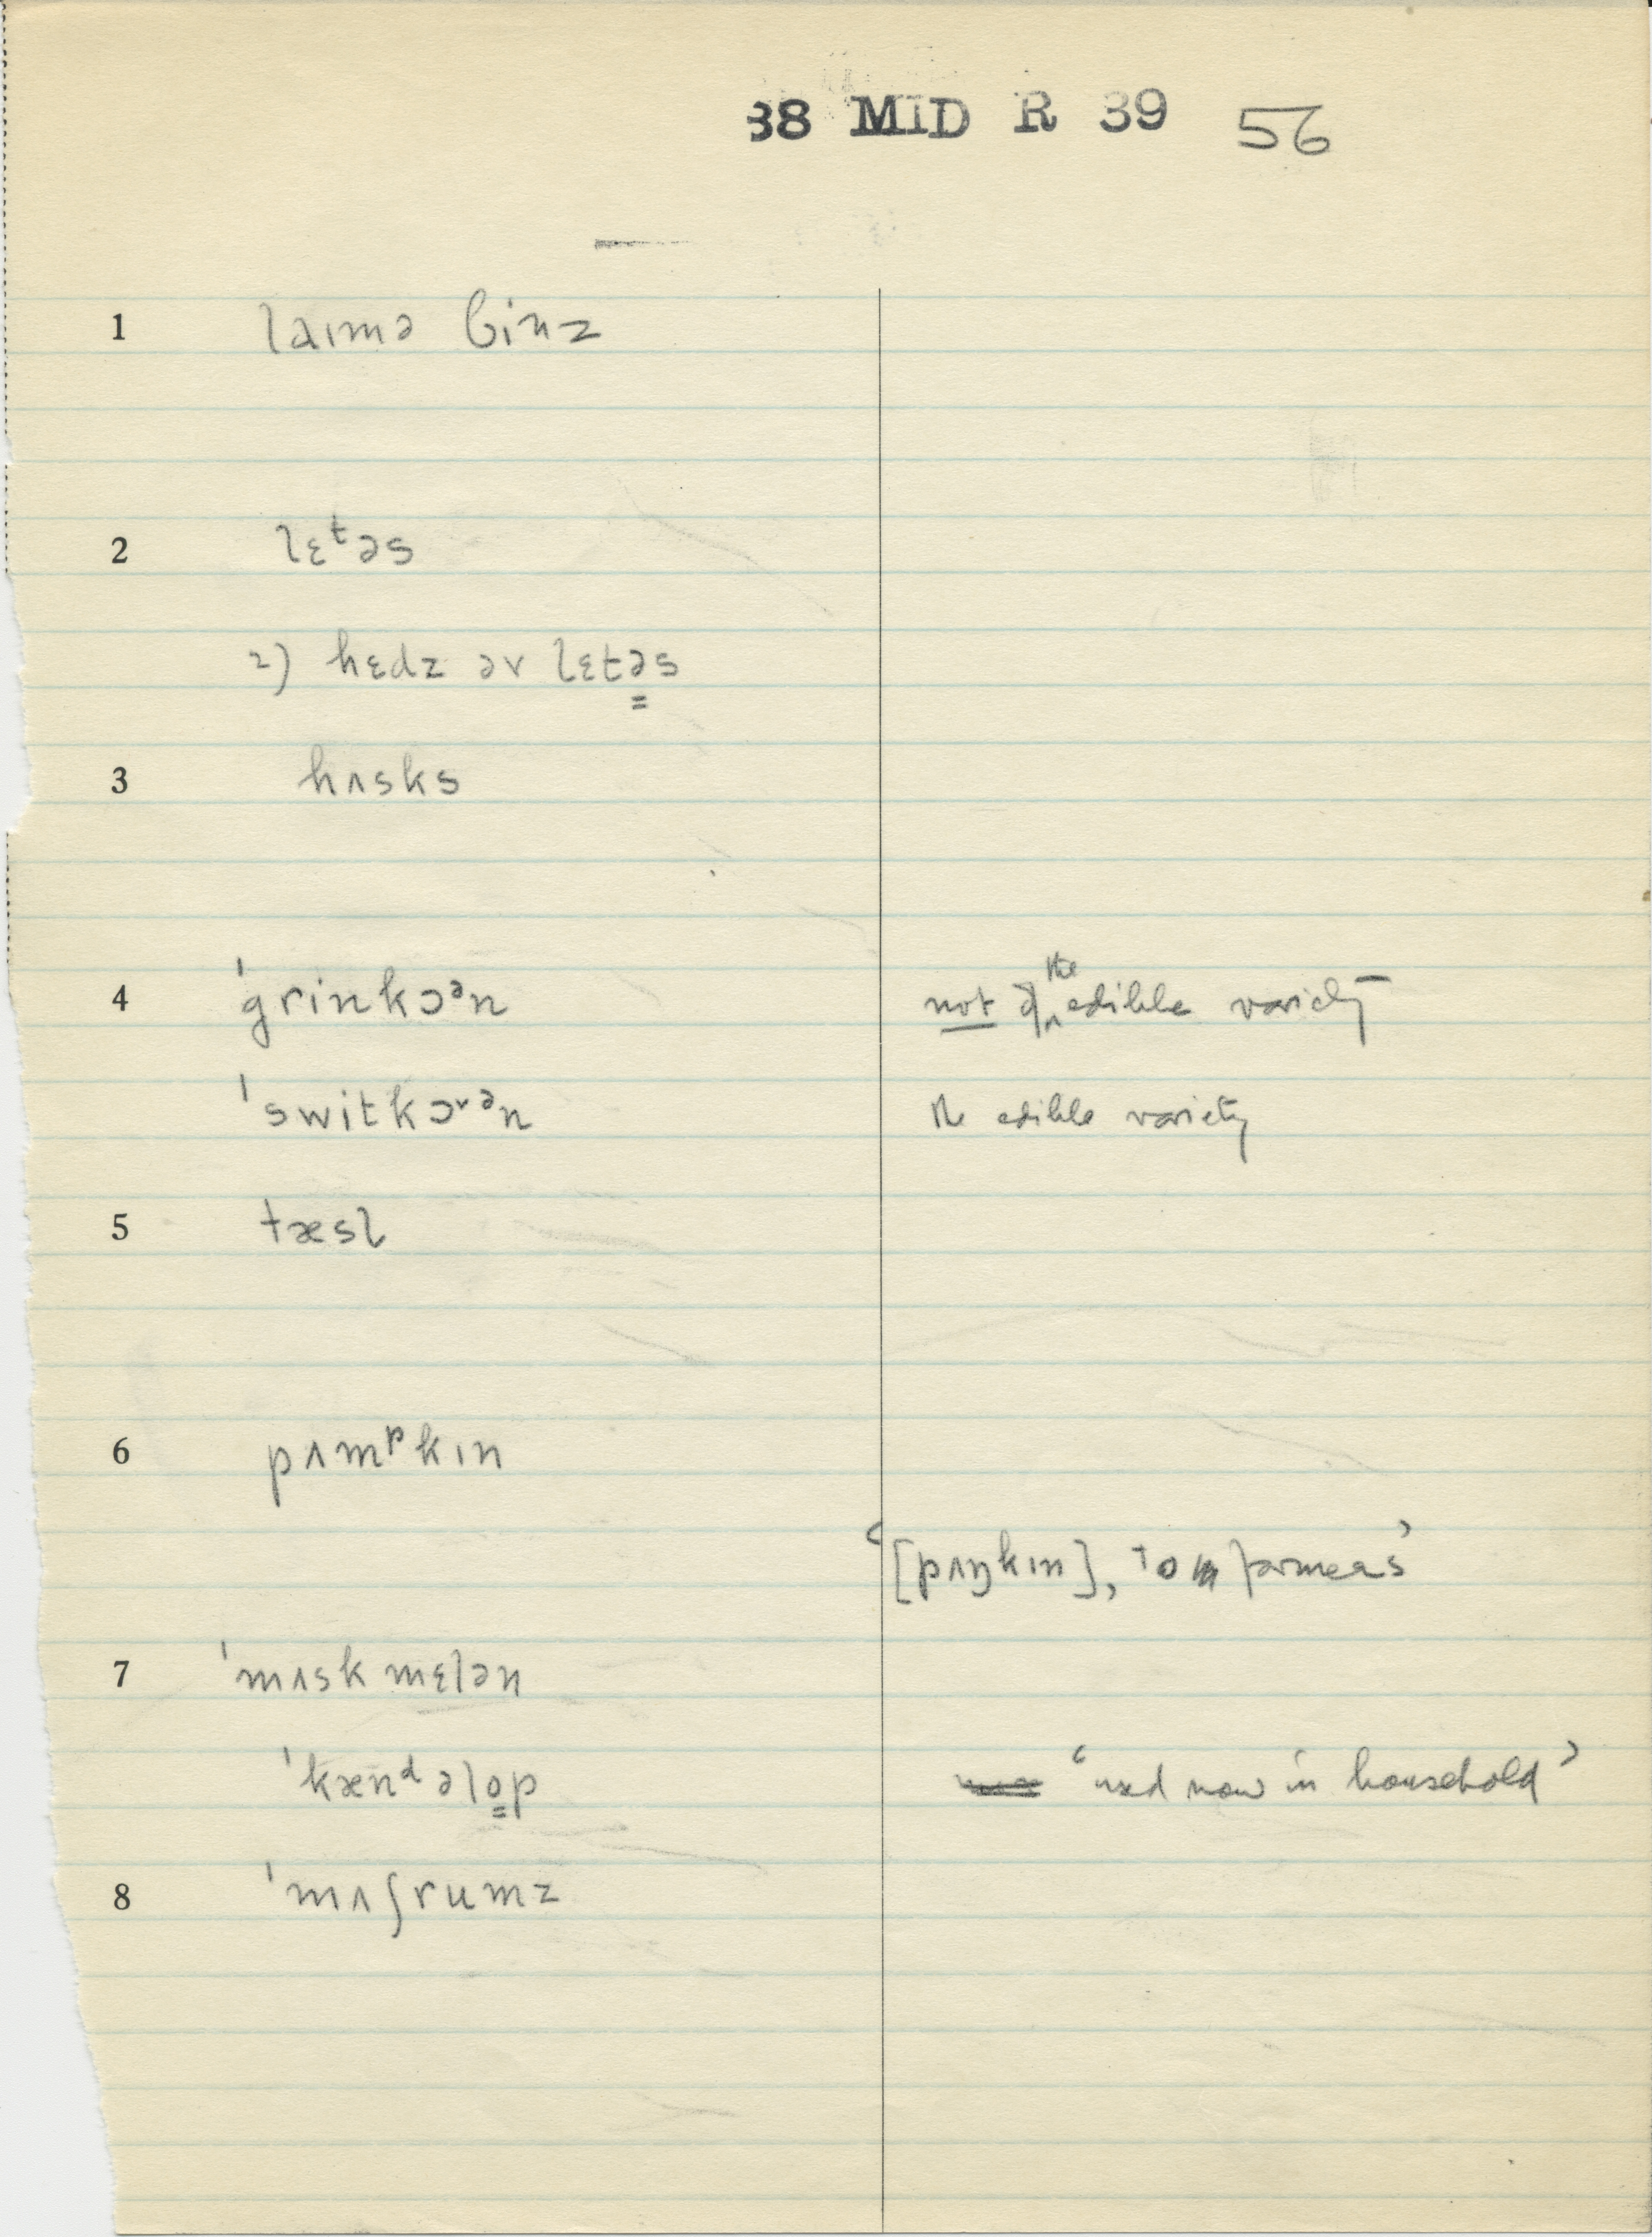 38 MID R 39 56
1 laɪmə binz
2 lɛᵗəs
2) hɛdz əv lɛtə̳s
3 hʌsks
4 ˈgrinkɔᵊn not of the edible variety
ˈswitkɔᵛᵊn the edible variety
5 tæsl
6 pʌmᵖkɪn
‘[pʌŋkɪn], to farmers’
7 ˈmʌskmɛlən
ˈkænᵈəlo̳p ‘used now in household’
8 ˈmʌʃrumz